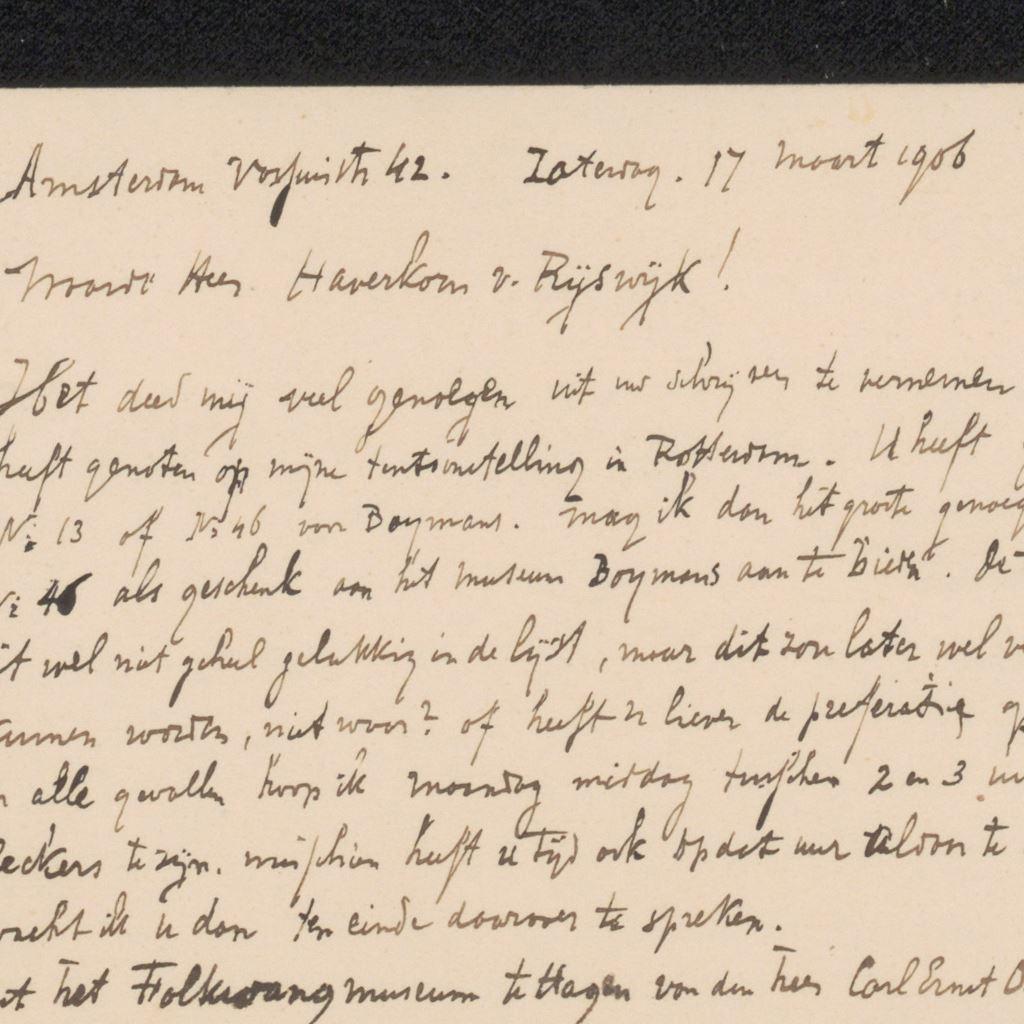 Amsterdam Vossiusstr 42. Zaterdag. 17 Maart 1906
Waarde Heer Haverkorn v. Rijswijk!
Het deed mij veel genoegen uit uw schrijven te vernemen
heeft genoten op mijne tentoonstelling in Rotterdam. U heeft
No 13 of No 46 voor Boymans. Mag ik dan het groote genoeg
No 46 als geschenk aan het museum Boymans aan te bieden. De
it wel niet geheel gelukkig in de lijst, maar dit zou later wel v
unnen worden, niet waar? of heeft U liever de preferatie op
alle gevallen hoop ik Maandag middag tusschen 2 en 3 uu
eckers te zijn. misschien heeft U tijd ook op dat uur aldaar te
wacht ik U dan ten einde daarover te spreken.
at het Folkwang museum te Hagen van den heer Carl Ernst O